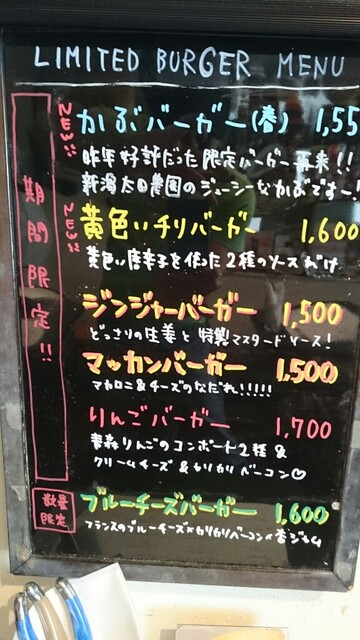 LIMITED BURGER MENU
期間限定!!
NEW!!
かぶバーガー(春) 1,55
昨年好評だった限定バーガー再来!!
新潟太田農園のジューシーなかぶですー!
NEW!!
黄色いチリバーガー 1,600
黄色い唐辛子を使った2種のソースがけ
ジンジャーバーガー 1,500
どっさりの生姜と特製マスタードソース!
マッカンバーガー 1,500
マカロニ&チーズのなだれ!!!!!
りんごバーガー 1,700
青森りんごのコンポート2種&
クリームチーズ&カリカリベーコン♡
数量限定
ブルーチーズバーガー 1,600
フランスのブルーチーズ×カリカリベーコン×杏ジャム